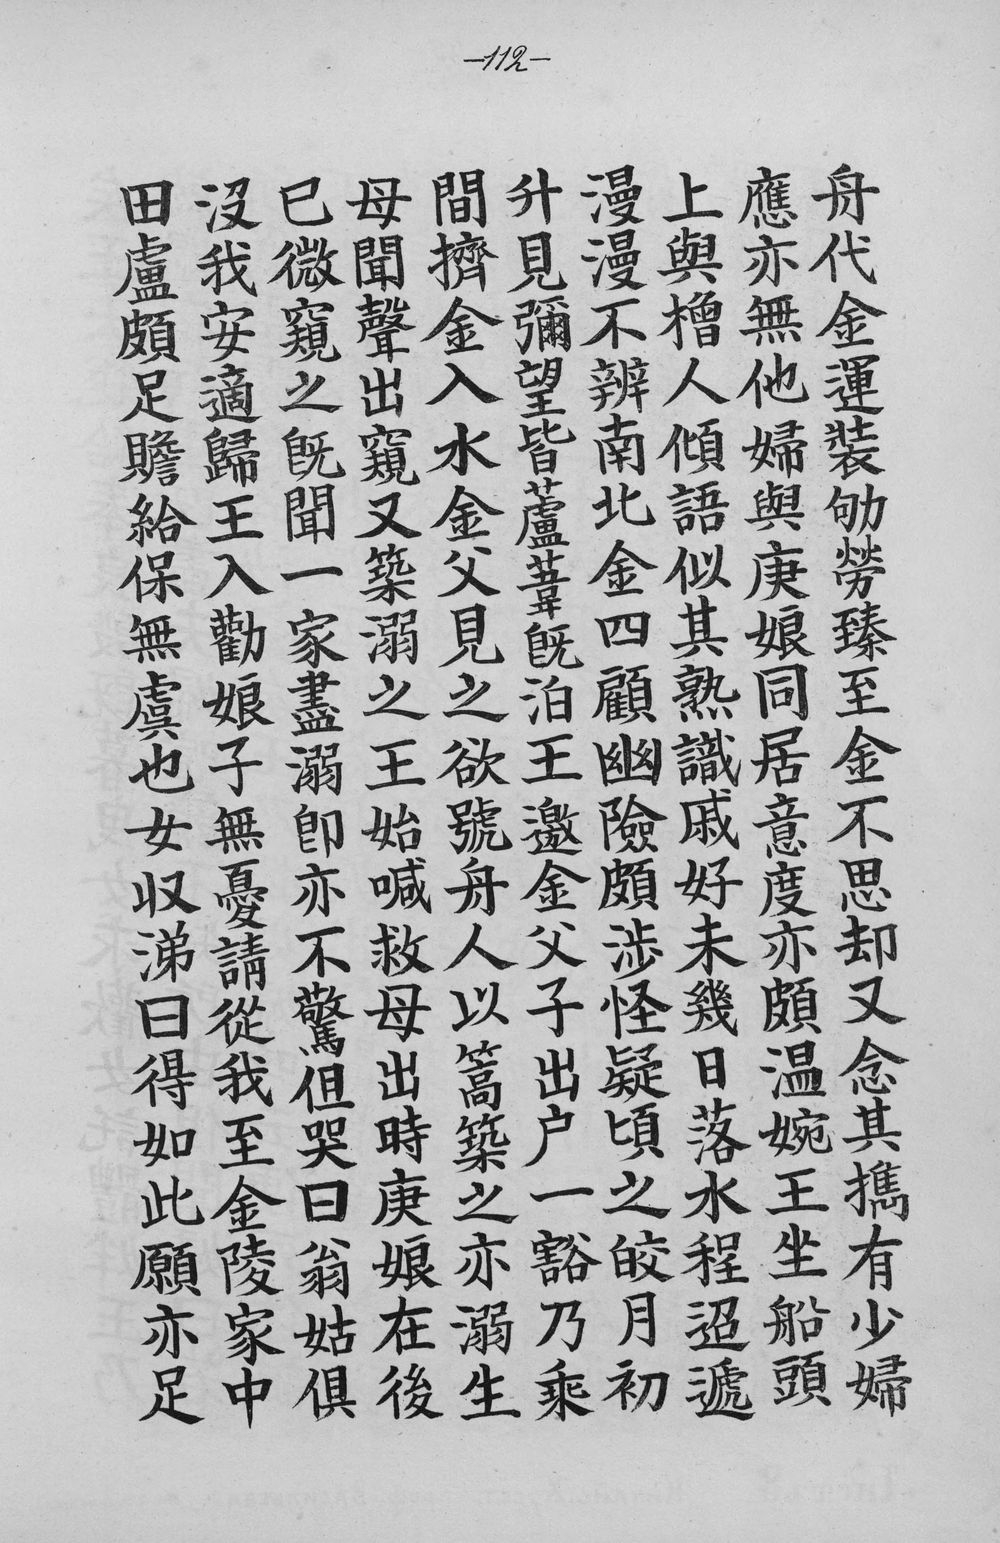 -112-
舟代金運裝劬勞臻至金不思却又念其攜有少婦
應亦無他婦與庚娘同居意度亦頗溫婉王坐船頭
上與櫓人傾語似其熟識戚好未幾日落水程迢遞
漫漫不辨南北金四顧幽險頗涉怪疑頃之皎月初
升見彌望皆蘆葦既泊王邀金父子出户一豁乃乘
間擠金入水金父見之欲號舟人以篙築之亦溺生
母聞聲出窺又築溺之王始喊救母出時庚娘在後
已微窺之既聞一家盡溺卽亦不驚但哭曰翁姑俱
沒我安適歸王入勸娘子無憂請從我至金陵家中
田盧頗足贍給保無虞也女收涕曰得如此願亦足